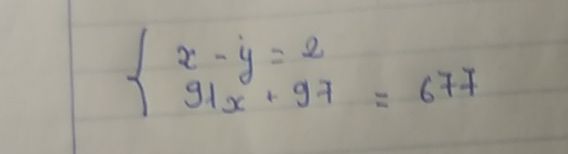 x - y = 2
91x + 97 = 677